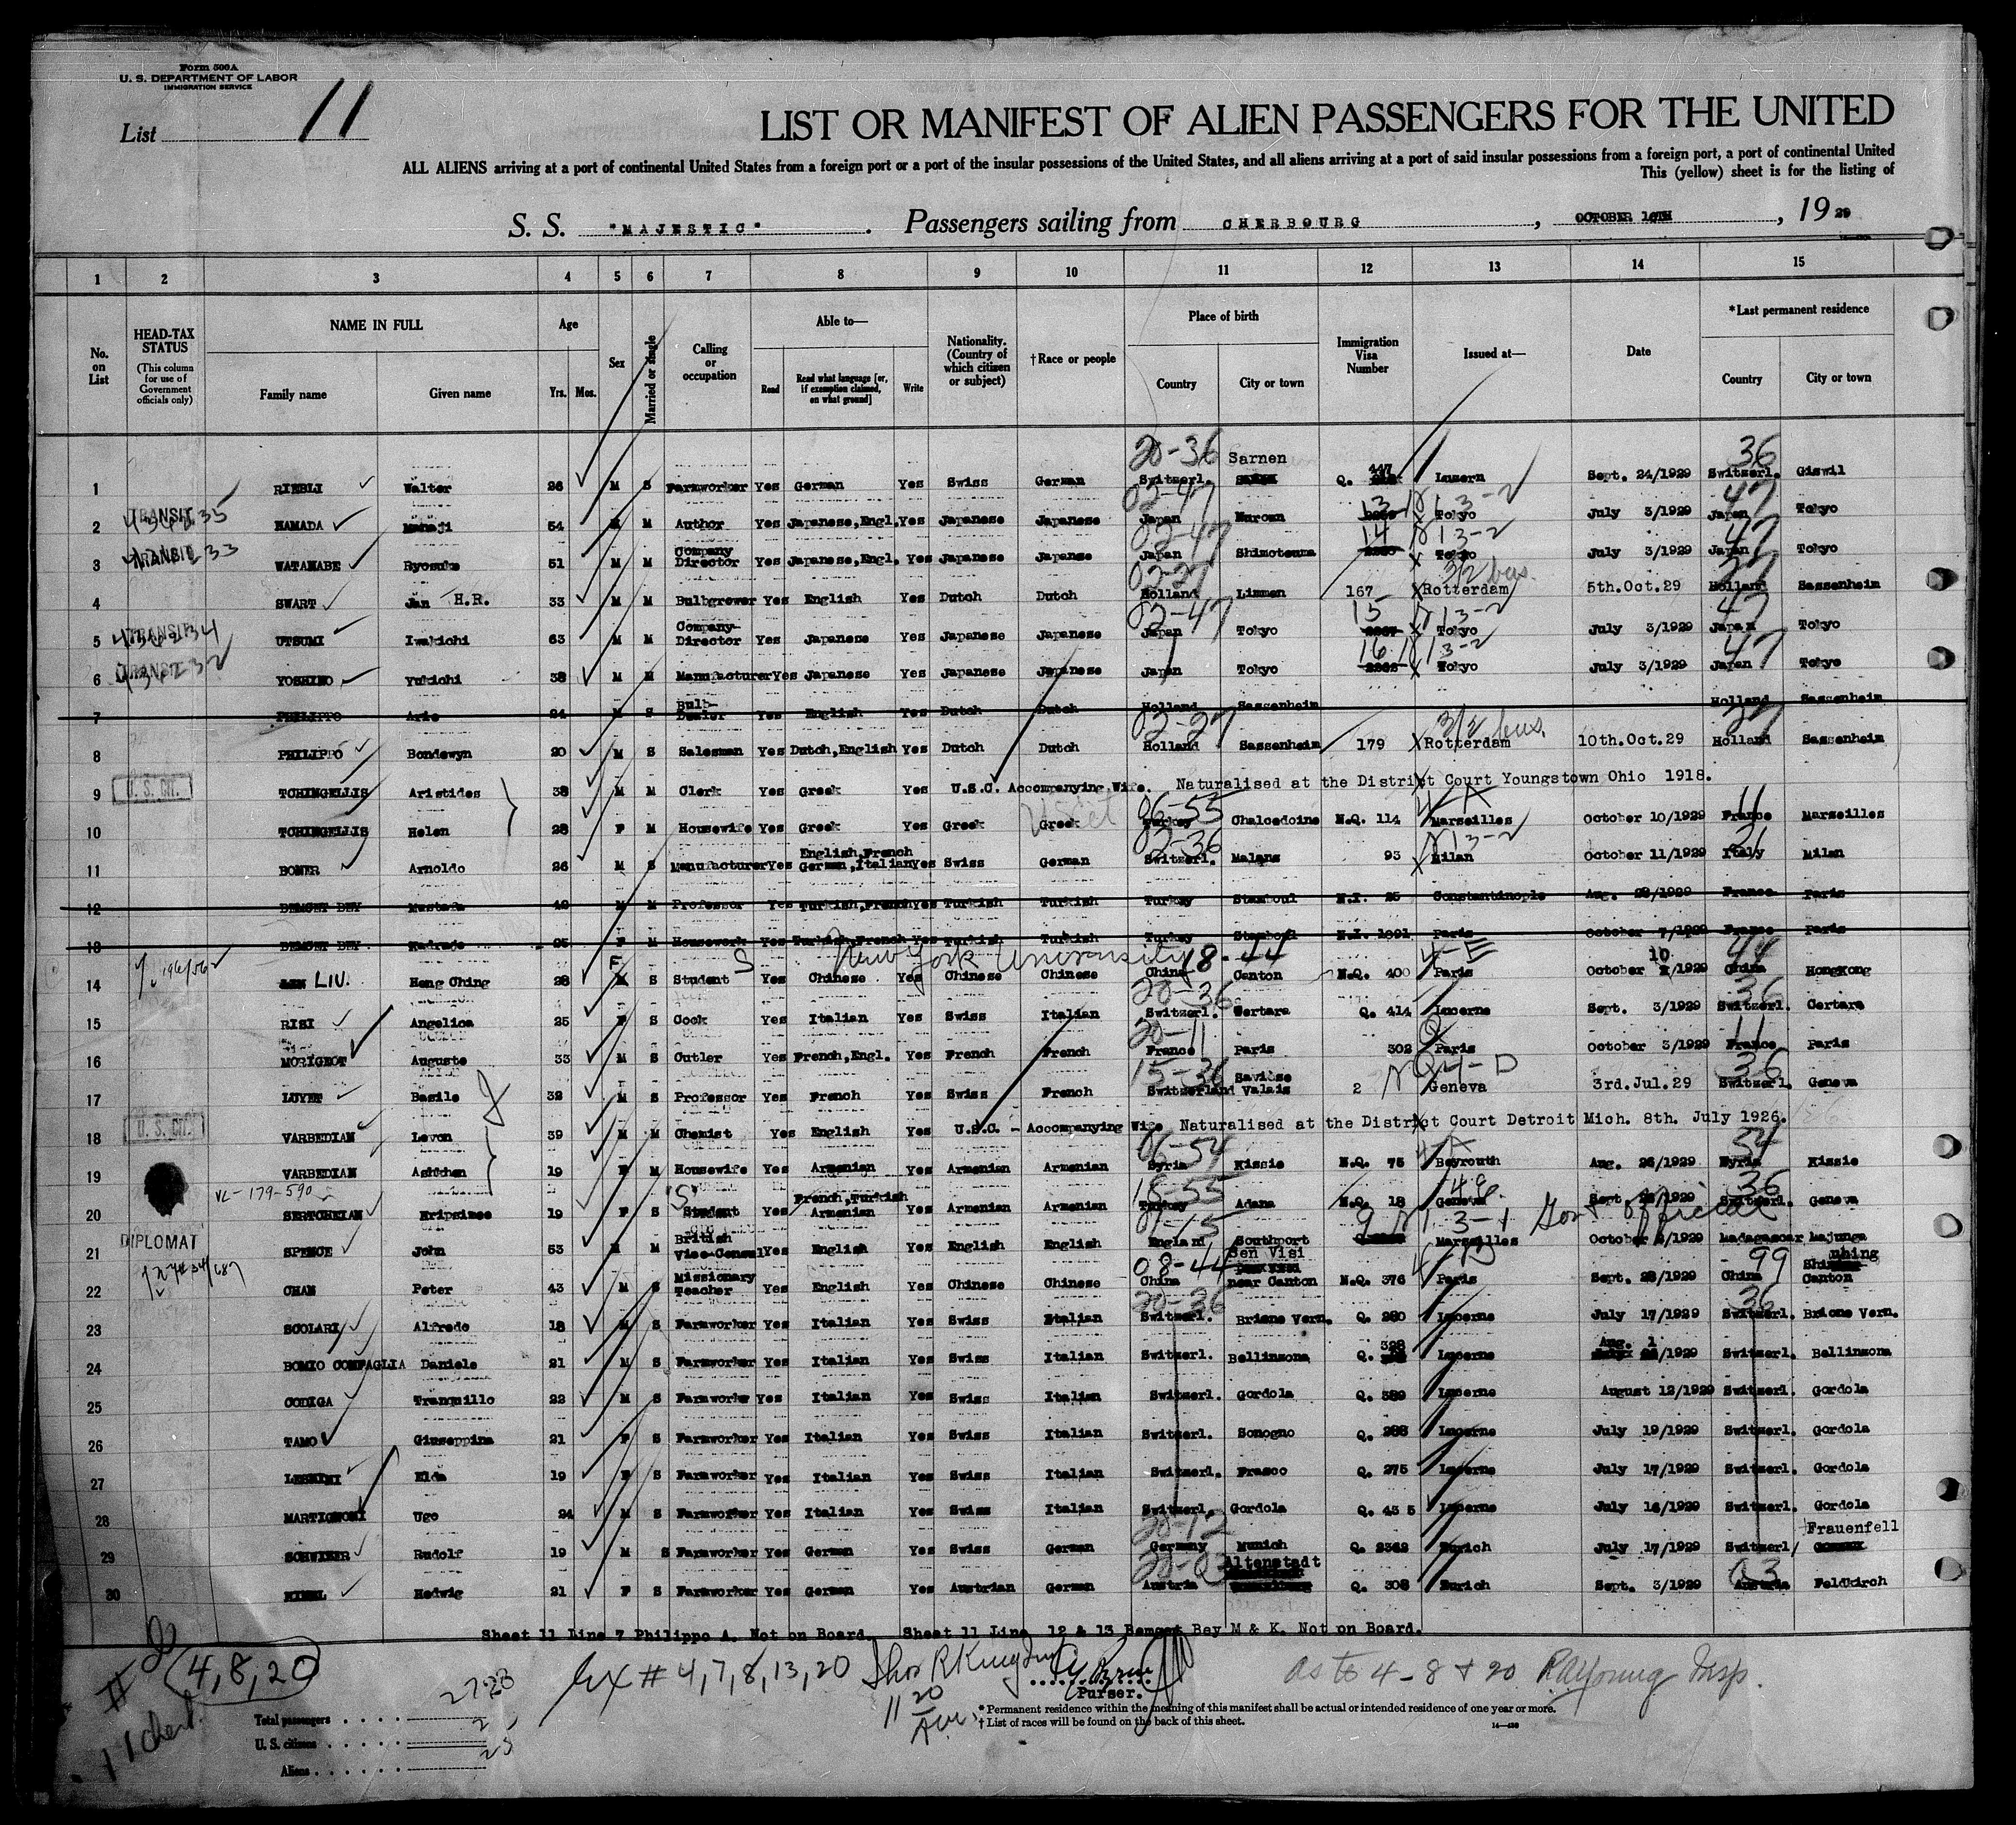 Form 500A
U. S. DEPARTMENT OF LABOR
IMMIGRATION SERVICE
List 11
LIST OR MANIFEST OF ALIEN PASSENGERS FOR THE UNITED
ALL ALIENS arriving at a port of continental United States from a foreign port or a port of the insular possessions of the United States, and all aliens arriving at a port of said insular possessions from a foreign port, a port of continental United
This (yellow) sheet is for the listing of
S. S. "MAJESTIC" . Passengers sailing from CHERBOURG , OCTOBER 16TH , 19 29
1 2 3 4 5 6 7 8 9 10 11 12 13 14 15
No. on List
HEAD-TAX STATUS (This column for use of Government officials only)
NAME IN FULL Family name Given name
Age Yrs. Mos.
Sex
Married or single
Calling or occupation
Able to— Read Read what language [or, if exemption claimed, on what ground] Write
Nationality. (Country of which citizen or subject)
†Race or people
Place of birth Country City or town
Immigration Visa Number
Issued at—
Date
*Last permanent residence Country City or town
20-36 Sarnen 447 36
1 RIEBLI Walter 26 M S Farmworker Yes German Yes Swiss German Switzerl. Q. Luzern Sept. 24/1929 Switzerl. Giswil
02-47 13 13-2 47
2 TRANSIT HAMADA 54 M M Author Yes Japanese, Engl. Yes Japanese Japanese Japan Muroun Tokyo July 3/1929 Japan Tokyo
02-47 14 13-2 47
3 TRANSIT WATANABE Ryosuke 51 M M Company Director Yes Japanese, Engl. Yes Japanese Japanese Japan Shimotsuma Tokyo July 3/1929 Japan Tokyo
02-27 3/2 bus. 27
4 SWART Jan H.R. 33 M M Bulbgrower Yes English Yes Dutch Dutch Holland Limmen 167 Rotterdam 5th.Oct.29 Holland Sassenheim
02-47 15 13-2 47
5 TRANSIT UTSUMI Iwakichi 63 M M Company Director Yes Japanese Yes Japanese Japanese Japan Tokyo Tokyo July 3/1929 Japan Tokyo
16 13-2 47
6 TRANSIT YOSHINO Yukichi 38 M M Manufacturer Yes Japanese Yes Japanese Japanese Japan Tokyo Tokyo July 3/1929 Japan Tokyo
7 PHILIPPO Arie 24 M S Bulb-Dealer Yes English Yes Dutch Dutch Holland Sassenheim Holland Sassenheim
02-27 3/2 bus. 27
8 PHILIPPO Bondewyn 20 M S Salesman Yes Dutch, English Yes Dutch Dutch Holland Sassenheim 179 Rotterdam 10th.Oct.29 Holland Sassenheim
9 U. S. CIT. TCHINGELLIS Aristides 38 M M Clerk Yes Greek Yes U.S.C. Accompanying Wife. Naturalised at the District Court Youngstown Ohio 1918.
06-55 4-A 11
10 TCHINGELLIS Helen 28 F M Housewife Yes Greek Yes Greek Greek Turkey Chalcedoine N.Q. 114 Marseilles October 10/1929 France Marseilles
02-36 13-2 21
11 BONER Arnoldo 26 M S Manufacturer Yes English, French German, Italian Yes Swiss German Switzerl. Malans 93 Milan October 11/1929 Italy Milan
12 BEMGET BEY Mustafa 49 M M Professor Yes Turkish, French Yes Turkish Turkish Turkey Stamboul N.I. 25 Constantinople Aug. 28/1929 France Paris
13 BEMGET BEY 25 F M Housework Yes Turkish, French Yes Turkish Turkish Turkey Stamboul N.I. 1891 Paris October 7/1929 France Paris
S New York University 18-44 4-E 10 44
14 LIU. Heng Ching 28 F S Student Yes Chinese Yes Chinese Chinese China Canton N.Q. 400 Paris October /1929 China HongKong
20-36 36
15 RISI Angelica 25 F S Cook Yes Italian Yes Swiss Italian Switzerl. Q. 414 Lucerne Sept. 3/1929 Switzerl.
20-11 11
16 MORIGEOT Auguste 33 M S Cutler Yes French, Engl. Yes French French France Paris 302 Paris October 3/1929 France Paris
15-36 4-D 36
17 LUYET Basile 32 M S Professor Yes French Yes Swiss French Switzerland Savièse Valais 2 Geneva 3rd.Jul.29 Switzerl. Geneva
18 U. S. CIT. VARBEDIAN Levon 39 M M Chemist Yes English Yes U.S.C. - Accompanying Wife Naturalised at the District Court Detroit Mich. 8th. July 1926.
06-54 4-A 54
19 VARBEDIAN Aschken 19 F M Housewife Yes Armenian Yes Armenian Armenian Syria Kissie N.Q. 75 Beyrouth Aug. 26/1929 Syria Kissie
VL-179-590 "S" 18-55 4e. 36
20 SERTCHEIAN Hripsimee 19 F S Student Yes French, Turkish Armenian Yes Armenian Armenian Turkey Adana N.Q. 18 Geneva Sept. /1929 Switzerl. Geneva
01-15 3-1 Govt Official
21 DIPLOMAT SPENCE John 53 M M British Vice-Consul Yes English Yes English English England Southport Marseilles October /1929 Madagascar Majunga
08-44 4-D 99
22 CHAN Peter 43 M S Missionary Teacher Yes English Yes Chinese Chinese China Sen Visi near Canton N.Q. 376 Paris Sept. 28/1929 China Canton
20-36 36
23 SCOLARI Alfredo 18 M S Farmworker Yes Italian Yes Swiss Italian Switzerl. Brione Vern. Q. 280 Lucerne July 17/1929 Switzerl. Brione Vern.
328 Aug. 1
24 BOMIO CONFAGLIA Daniele 21 M S Farmworker Yes Italian Yes Swiss Italian Switzerl. Bellinzona Q. Lucerne /1929 Switzerl. Bellinzona
25 CODIGA Tranquillo 22 M S Farmworker Yes Italian Yes Swiss Italian Switzerl. Gordola Q. 389 Lucerne August 12/1929 Switzerl. Gordola
26 TAMO Giuseppina 21 F S Farmworker Yes Italian Yes Swiss Italian Switzerl. Sonogno Q. 288 Lucerne July 19/1929 Switzerl. Gordola
27 Elda 19 F S Farmworker Yes Italian Yes Swiss Italian Switzerl. Frasco Q. 275 Lucerne July 17/1929 Switzerl. Gordola
28 MARTIGNONI Ugo 24 M S Farmworker Yes Italian Yes Swiss Italian Switzerl. Gordola Q. 43 5 Lucerne July 16/1929 Switzerl. Gordola
20-12 Frauenfell
29 SCHWIZER Rudolf 19 M S Farmworker Yes German Yes Swiss German Germany Munich Q. 2362 Zurich July 17/1929 Switzerl
20-03 Altenstadt 03
30 Hedwig 21 F S Farmworker Yes German Yes Austrian German Austria Q. 308 Zurich Sept. 3/1929 Austria Feldkirch
Sheet 11 Line 7 Philippo A. Not on Board. Sheet 11 Line 12 & 13 Bemget Bey M & K. Not on Board.
4, 8, 20
Ex # 4,7,8,13,20
as to 4-8 & 20 R A Young Insp.
Purser.
* Permanent residence within the meaning of this manifest shall be actual or intended residence of one year or more.
† List of races will be found on the back of this sheet.
14-439
Total passengers 27
U. S. citizens 2
Aliens 25